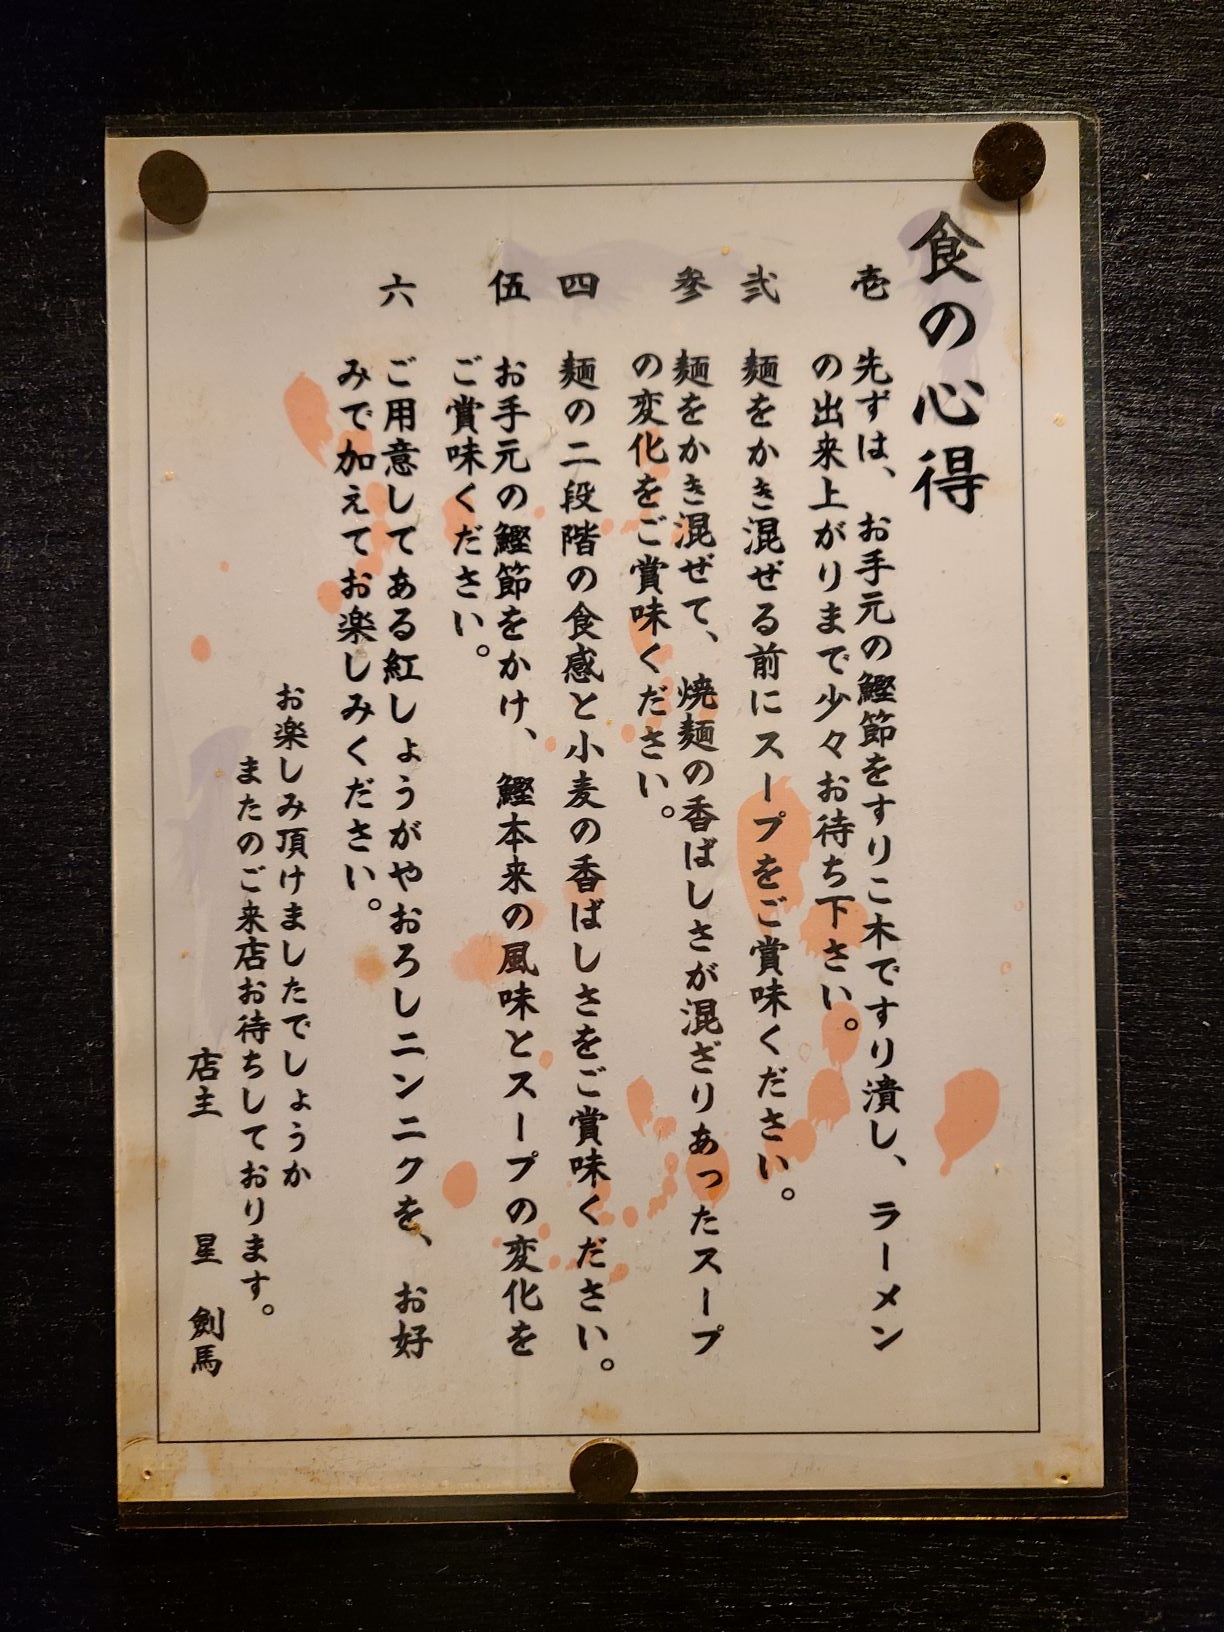 食の心得
壱 先ずは、お手元の鰹節をすりこ木ですり潰し、ラーメン
の出来上がりまで少々お待ち下さい。
弐 麺をかき混ぜる前にスープをご賞味ください。
参 麺をかき混ぜて、焼麺の香ばしさが混ざりあったスープ
の変化をご賞味ください。
四 麺の二段階の食感と小麦の香ばしさをご賞味ください。
伍 お手元の鰹節をかけ、鰹本来の風味とスープの変化を
ご賞味ください。
六 ご用意してある紅しょうがやおろしニンニクを、お好
みで加えてお楽しみください。
お楽しみ頂けましたでしょうか
またのご来店お待ちしております。
店主 星 剣馬